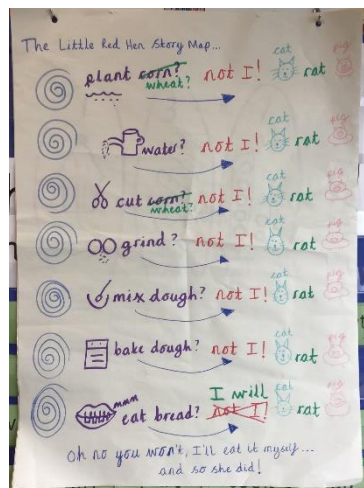 The Little Red Hen Story Map...
plant corn? not I! cat rat pig
wheat?
water? not I! cat rat pig
cut corn? not I! cat rat pig
wheat?
grind? not I! cat rat pig
mix dough? not I! cat rat pig
bake dough? not I! cat rat pig
mmm I will cat pig
eat bread? not I! rat
Oh no you won't, I'll eat it myself...
and so she did!